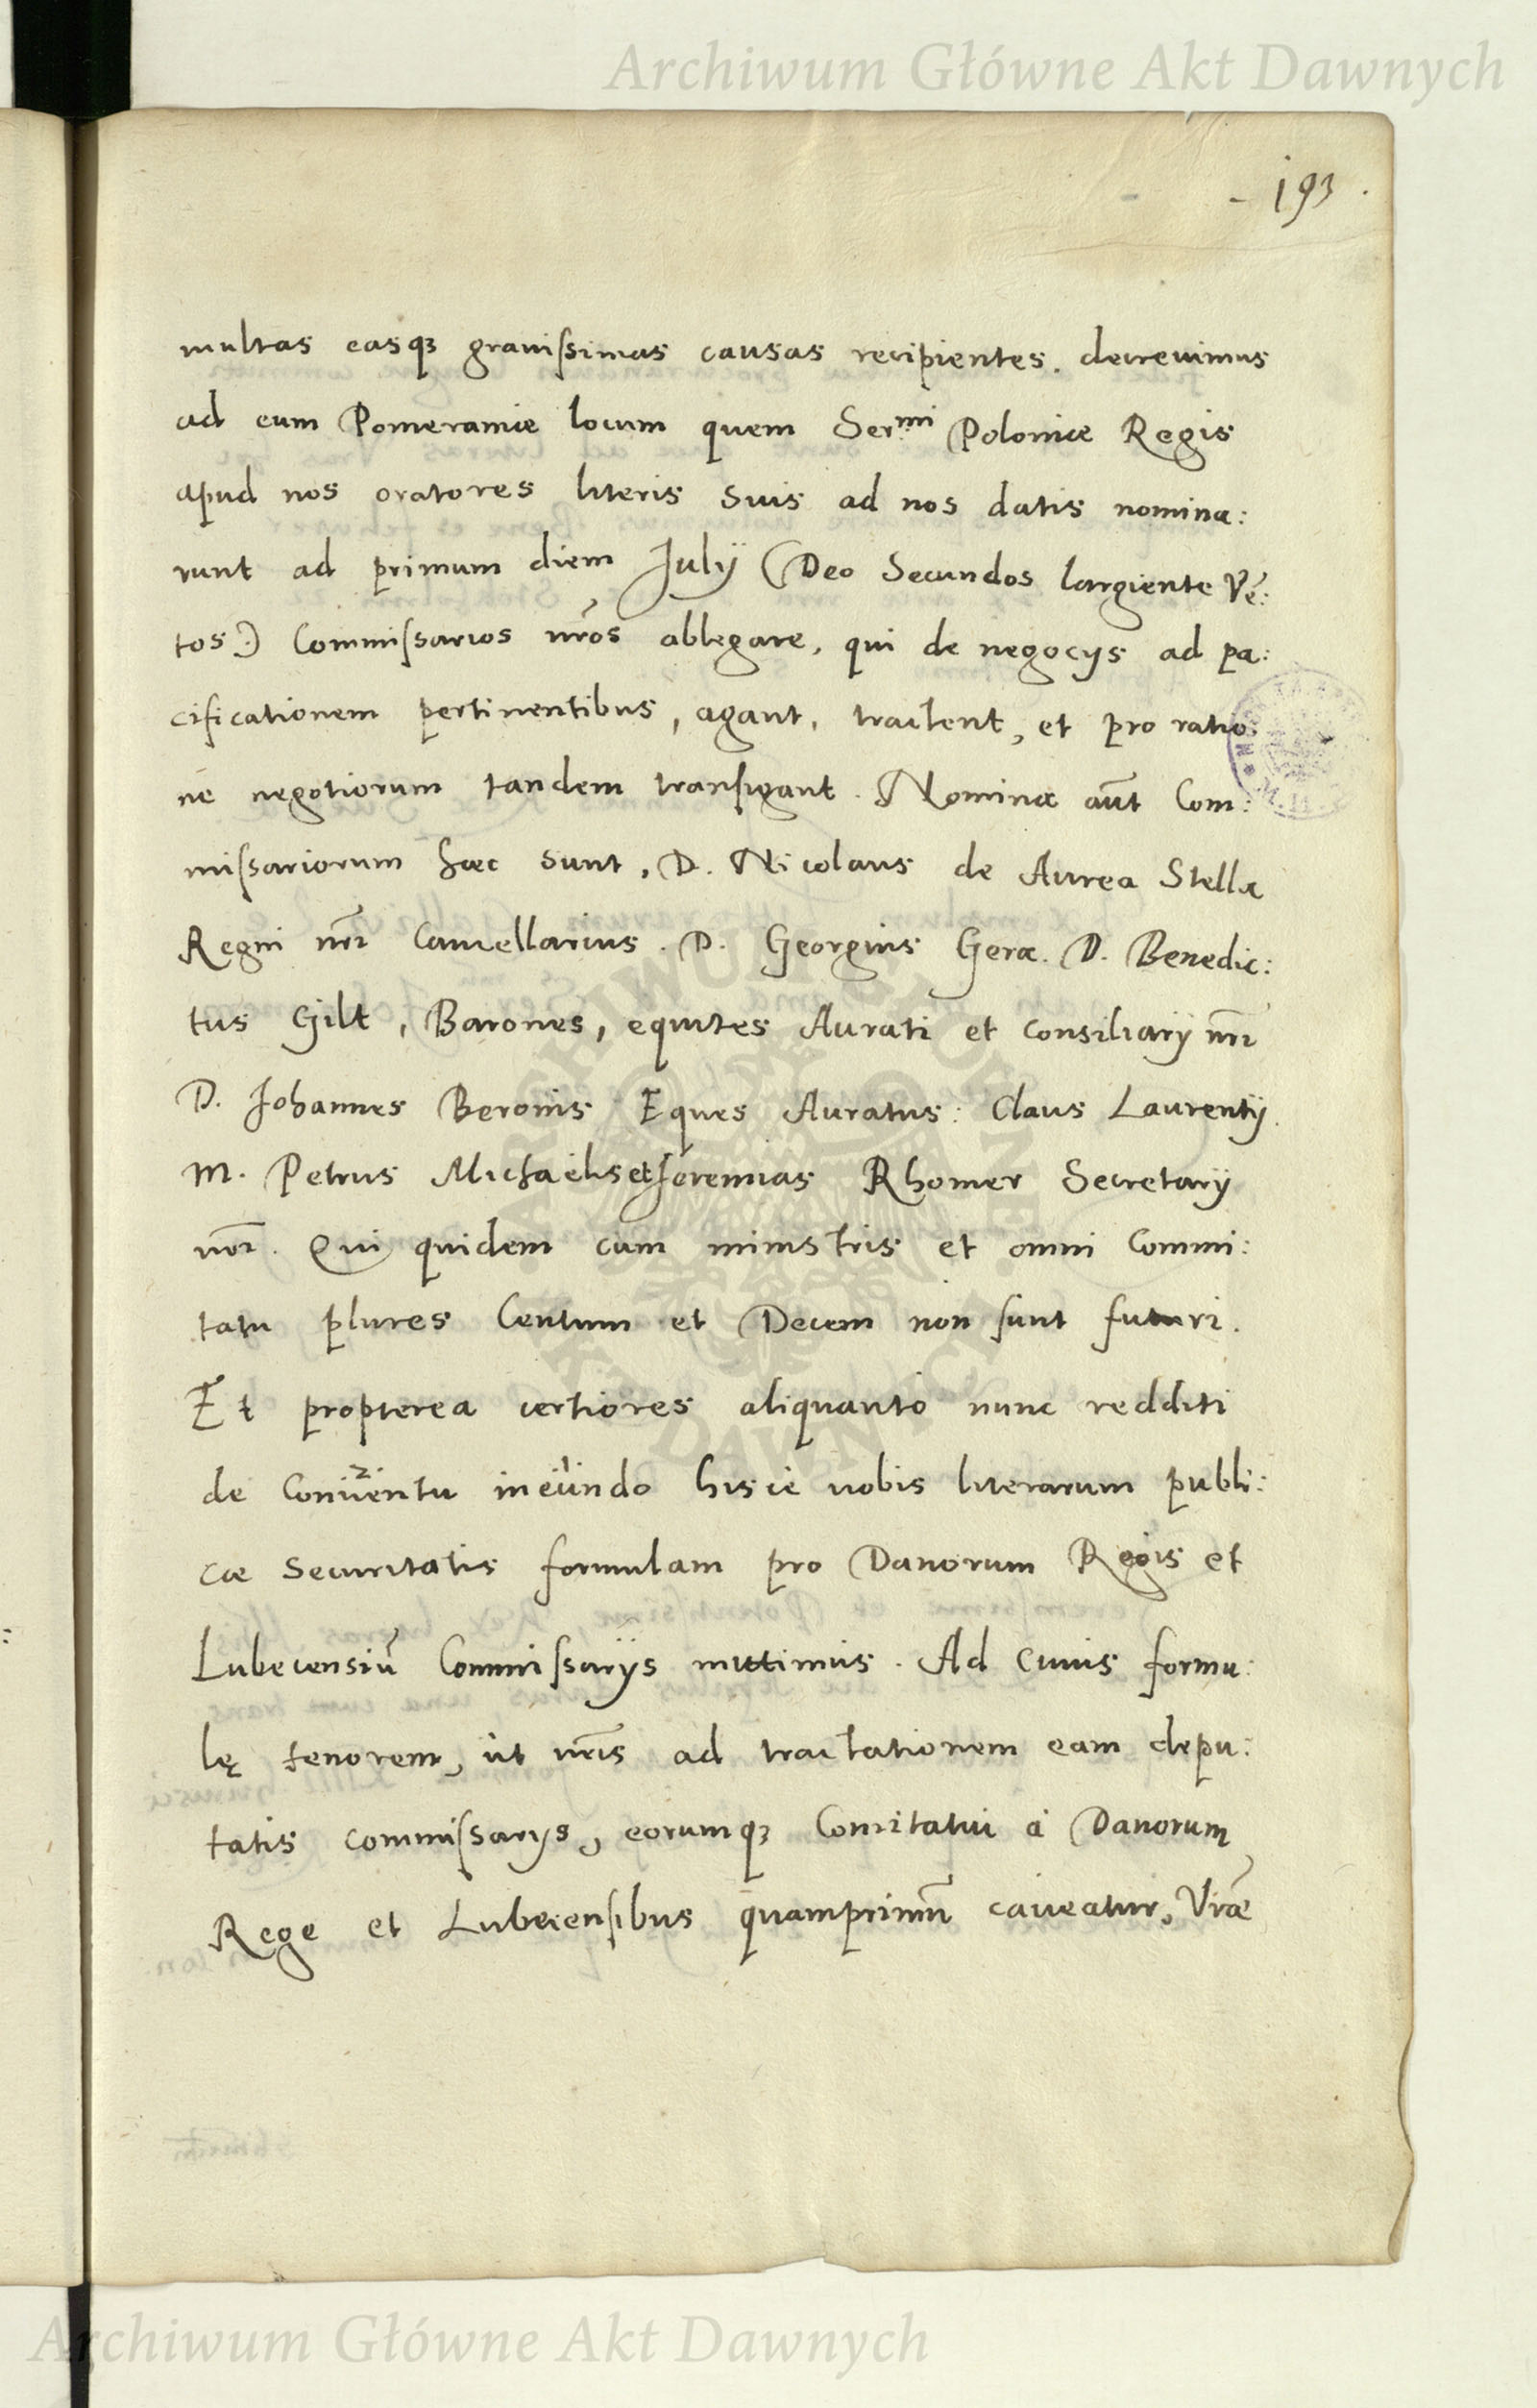 Archiwum Główne Akt Dawnych
193
multas easqꝫ grauiſsimas causas recipientes. decreuimus
ad eum Pomeraniæ locum quem Ser.mi Poloniæ Regis
apud nos oratores literis suis ad nos datis nomina:
runt ad primum diem Julÿ (Deo Secundos largiente Vē:
tos:) Commiſsarios nr̃os ablegare, qui de negocÿs ad pa:
cificationem pertinentibus, agant, tractent, et pro ratio:
ne negotiorum tandem tranſigant. Nomina aũt Com:
miſsariorum hæc sunt, D. Nicolaus de Aurea Stella
Regni nr̃i Cancellarius. D. Georgius Gera. D. Benedic:
tus Gilt, Barones, equites Aurati et consiliarÿ nr̃i
D. Johannes Beronis Eques Auratus: Claus Laurentÿ.
M. Petrus Michaelis et Jeremias Rhomer Secretarÿ
nr̃i. Qui quidem cum ministris et omni Commi:
tatu plures Centum et Decem non ſunt futuri.
Et propterea certiores aliquanto nunc redditi
de Conuentu 2. ineundo 1 hisce uobis literarum publi:
cæ Securitatis formulam pro Danorum Regis et
Lubecensiũ Commiſsarÿs mittimus. Ad cuius formu:
lę tenorem, ut nr̃is ad tractationem eam depu:
tatis commiſsarÿs, eorumqꝫ Comitatui à Danorum
Rege et Lubecenſibus quamprimũ caueatur, Vr̃æ
ARCHIWUM GŁÓWNE AKT DAWNYCH
Archiwum Główne Akt Dawnych